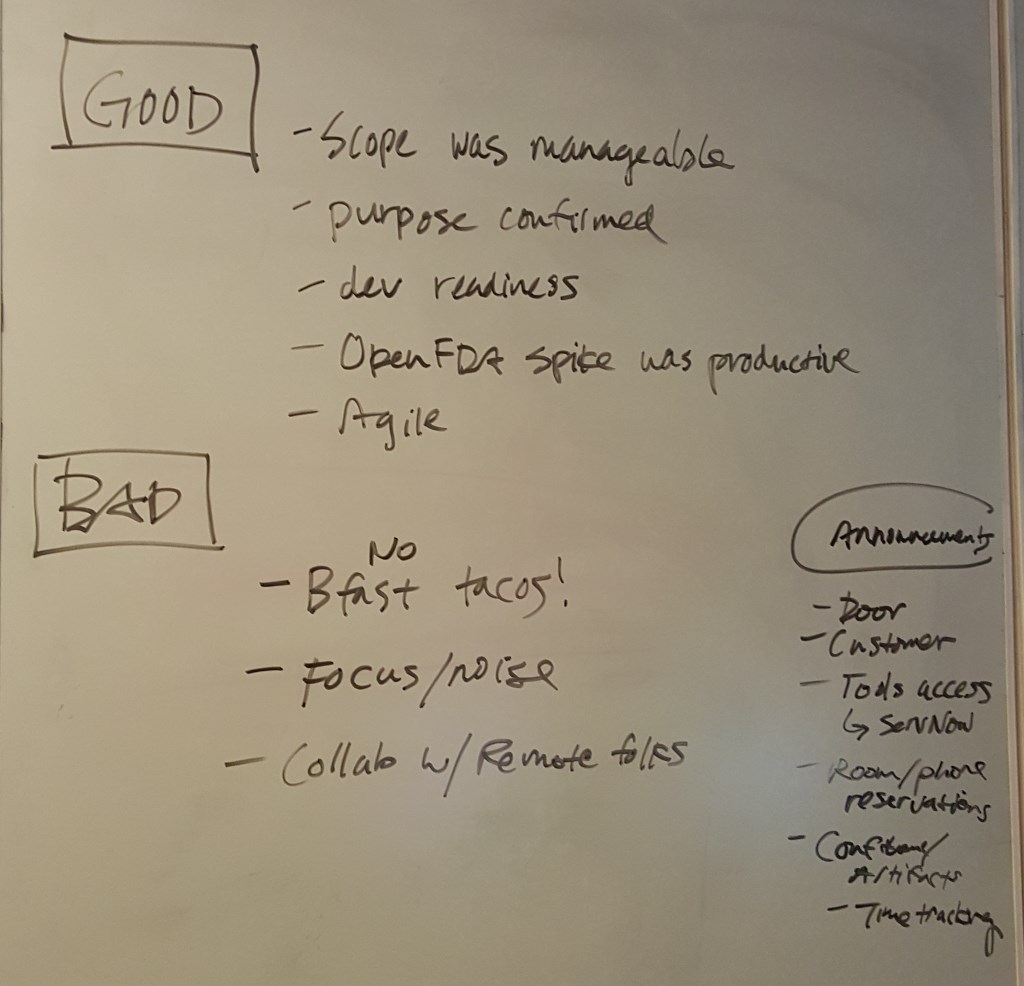 GOOD
- Scope was manageable
- purpose confirmed
- dev readiness
- OpenFDA spike was productive
- Agile
BAD
NO
- Bfast tacos!
- Focus/noise
- Collab w/ Remote folks
Announcements
- Door
- Customer
- Tools access
↳ ServNow
- Room/phone
reservations
-
Artifacts
- Time tracking